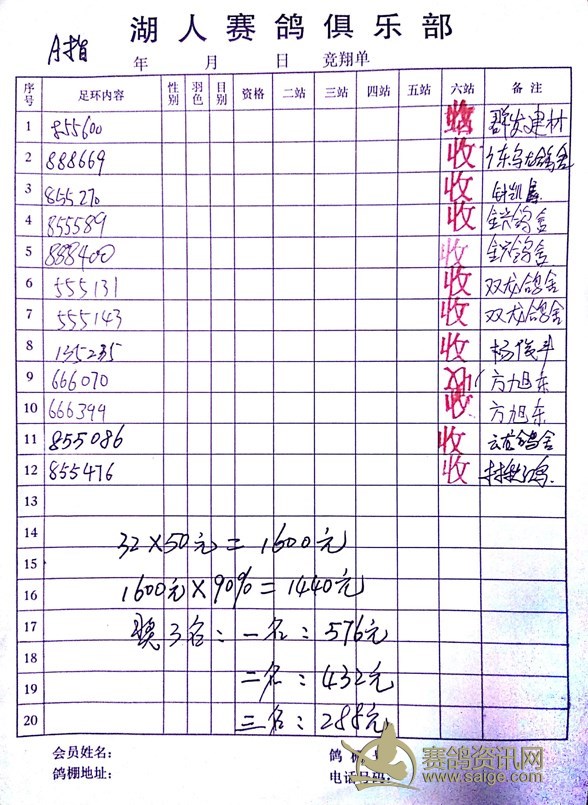 湖人赛鸽俱乐部
A指 年 月 日 竞翔单
序号 足环内容 性别 羽色 目别 资格 二站 三站 四站 五站 六站 备注
1 855600 群发建材
2 888669 收
3 855270 收
4 855589 收
5 888400 收
6 555131 收 双龙鸽舍
7 555143 收 双龙鸽舍
8 135235 收
9 666070 方旭东
10 666399 收 方旭东
11 855086 收
12 855476 收
13
14 32×50元=1600元
15
16 1600元×90%=1440元
17 奖3名:一名:576元
18
19 二名:432元
20 三名:288元
会员姓名: 鸽棚号
鸽棚地址: 电话号码:
赛鸽资讯网
www.saige.com